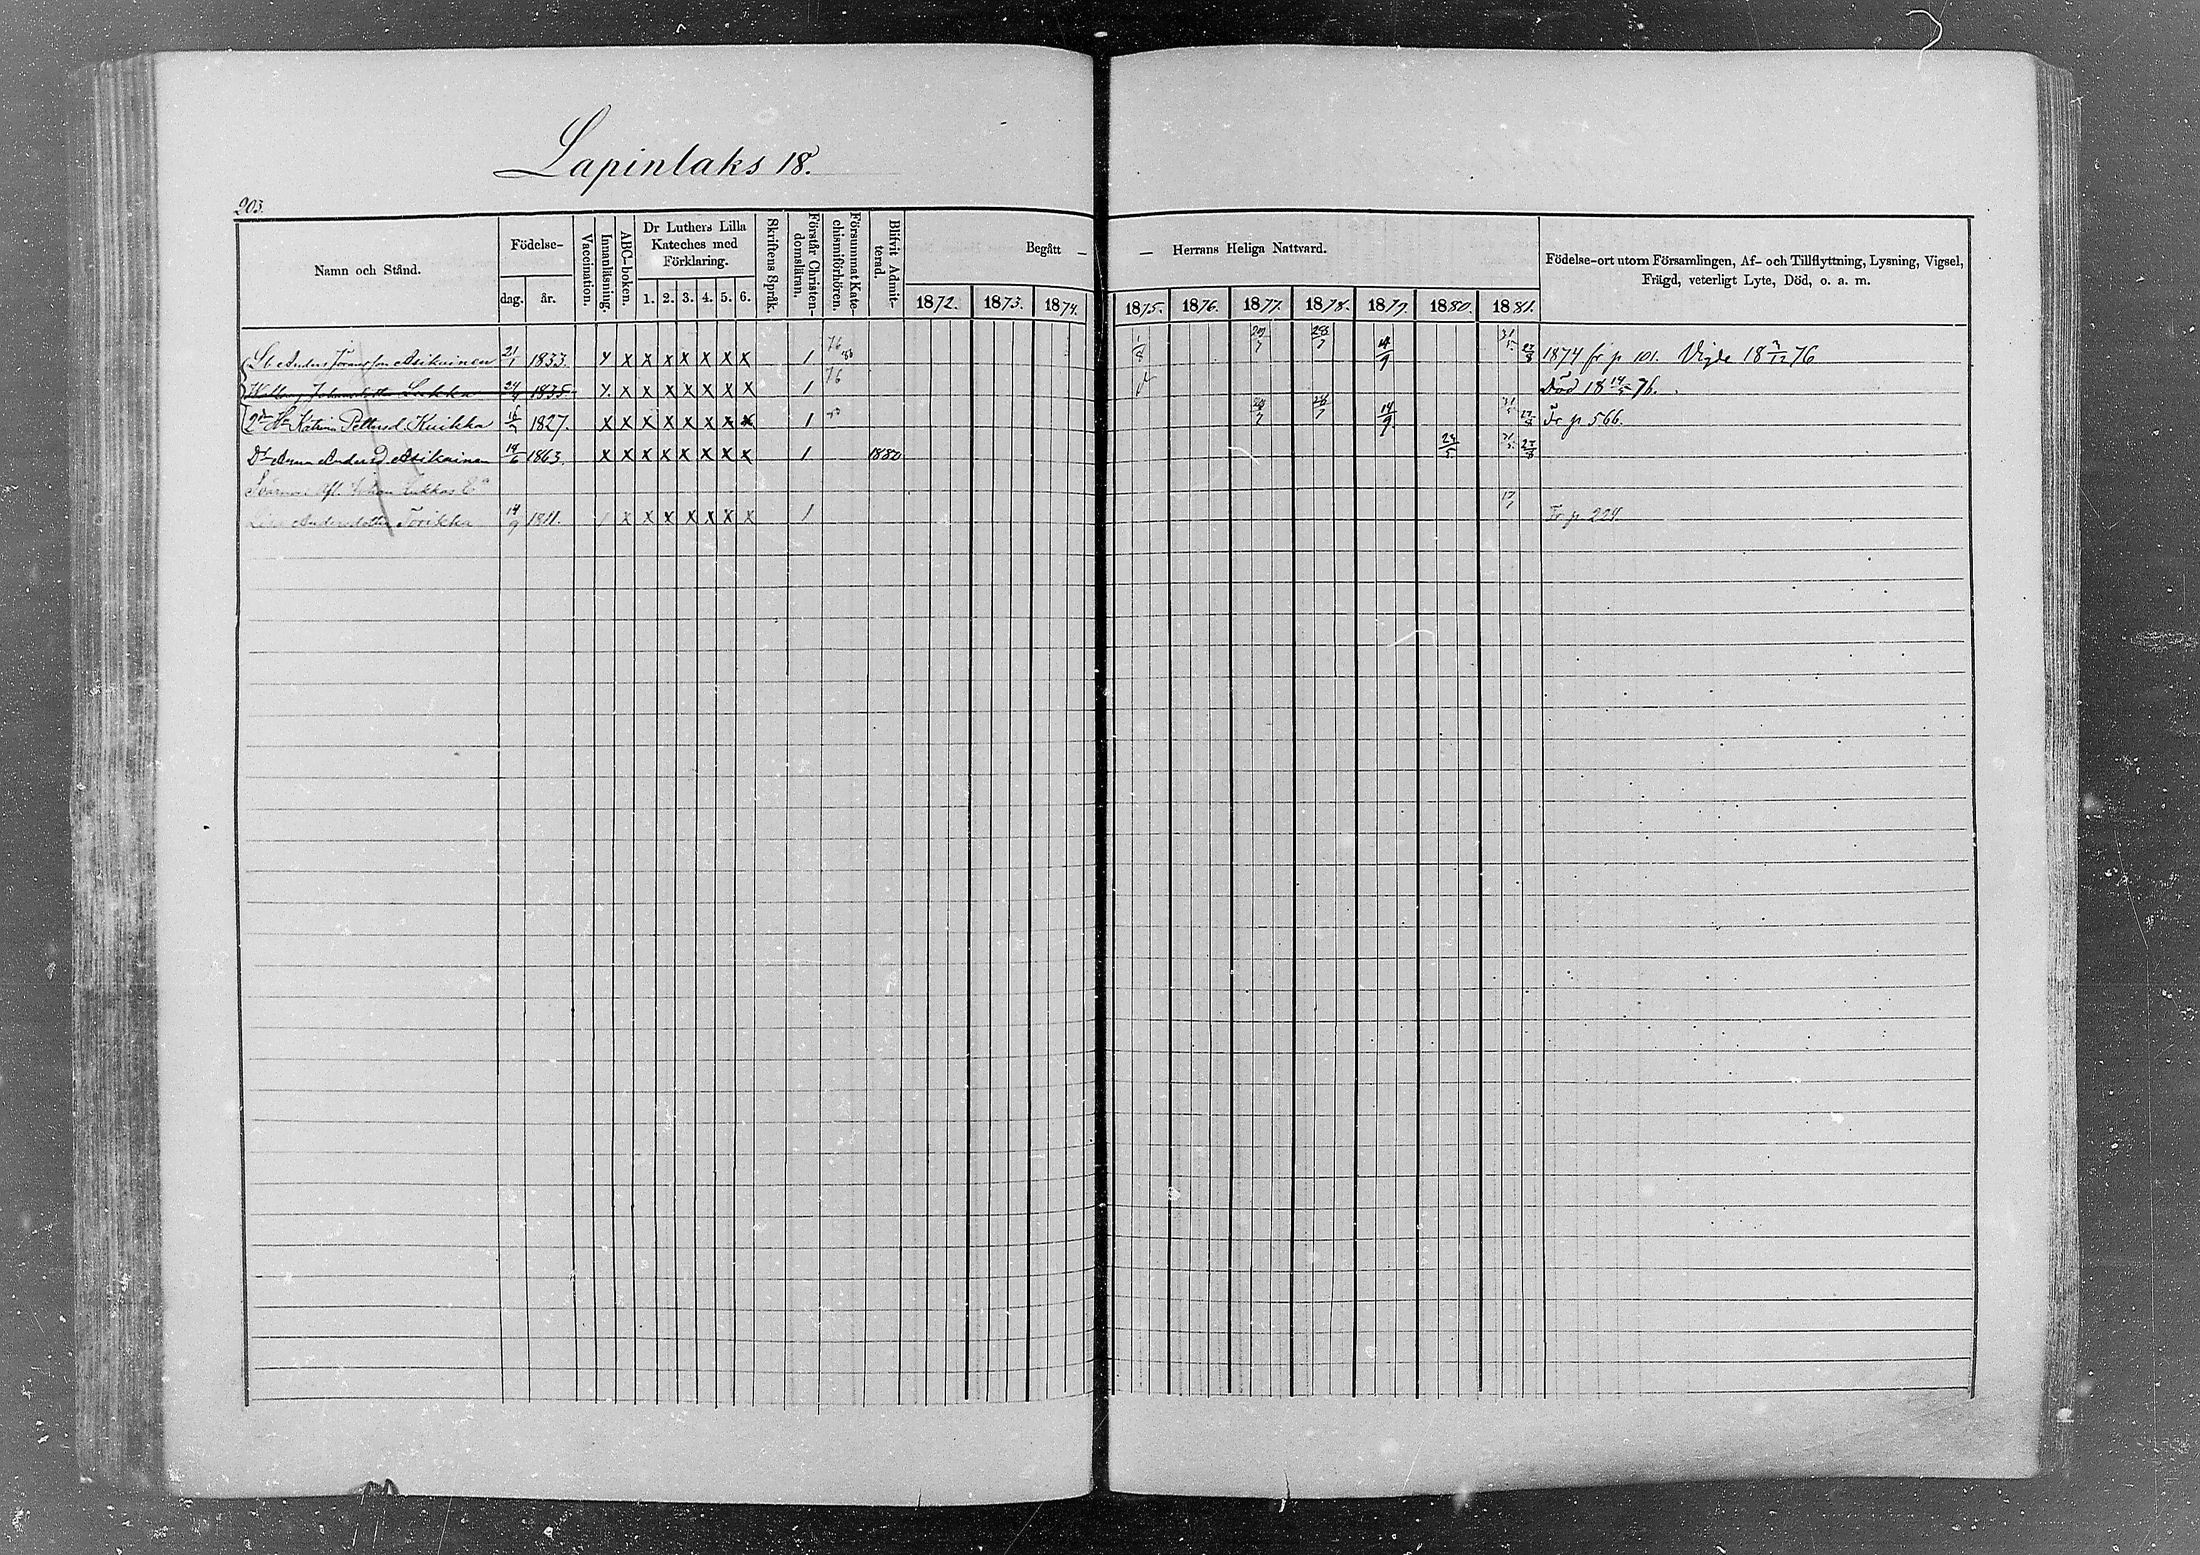 Lapinlaks 18.
203.
Namn och Stånd.
Födelse-
dag. år.
Vaccination.
Innanläsning.
ABC-boken.
Dr Luthers Lilla Kateches med Förklaring.
1. 2. 3. 4. 5. 6.
Skriftens Språk.
Förstår Christendomsläran.
Försummat Katechismiförhören.
Blifvit Admitterad.
Begått — — Herrans Heliga Nattvard.
1872. 1873. 1874. 1875. 1876. 1877. 1878. 1879. 1880. 1881.
Födelse-ort utom Församlingen, Af- och Tillflyttning, Lysning, Vigsel,
Frägd, veterligt Lyte, Död, o. a. m.
Anders Asikainen 21/1 1833. x x x x x x x 1 76 14/9 1874 fr p 101. Vigde 18 76
24 1835 x x x x x x x 1 76 Död 18 76.
2dra H Katrina Pettersd Kuikka 1827. x x x x x x x x 1 14/9 Fr p 566.
Dr Anna Andersd Asikainen 14/6 1863. x x x x x x x x 1 1880 Johan
Andersdotter Torikka 14/9 1811. x x x x x x x 1 Fr p 224.